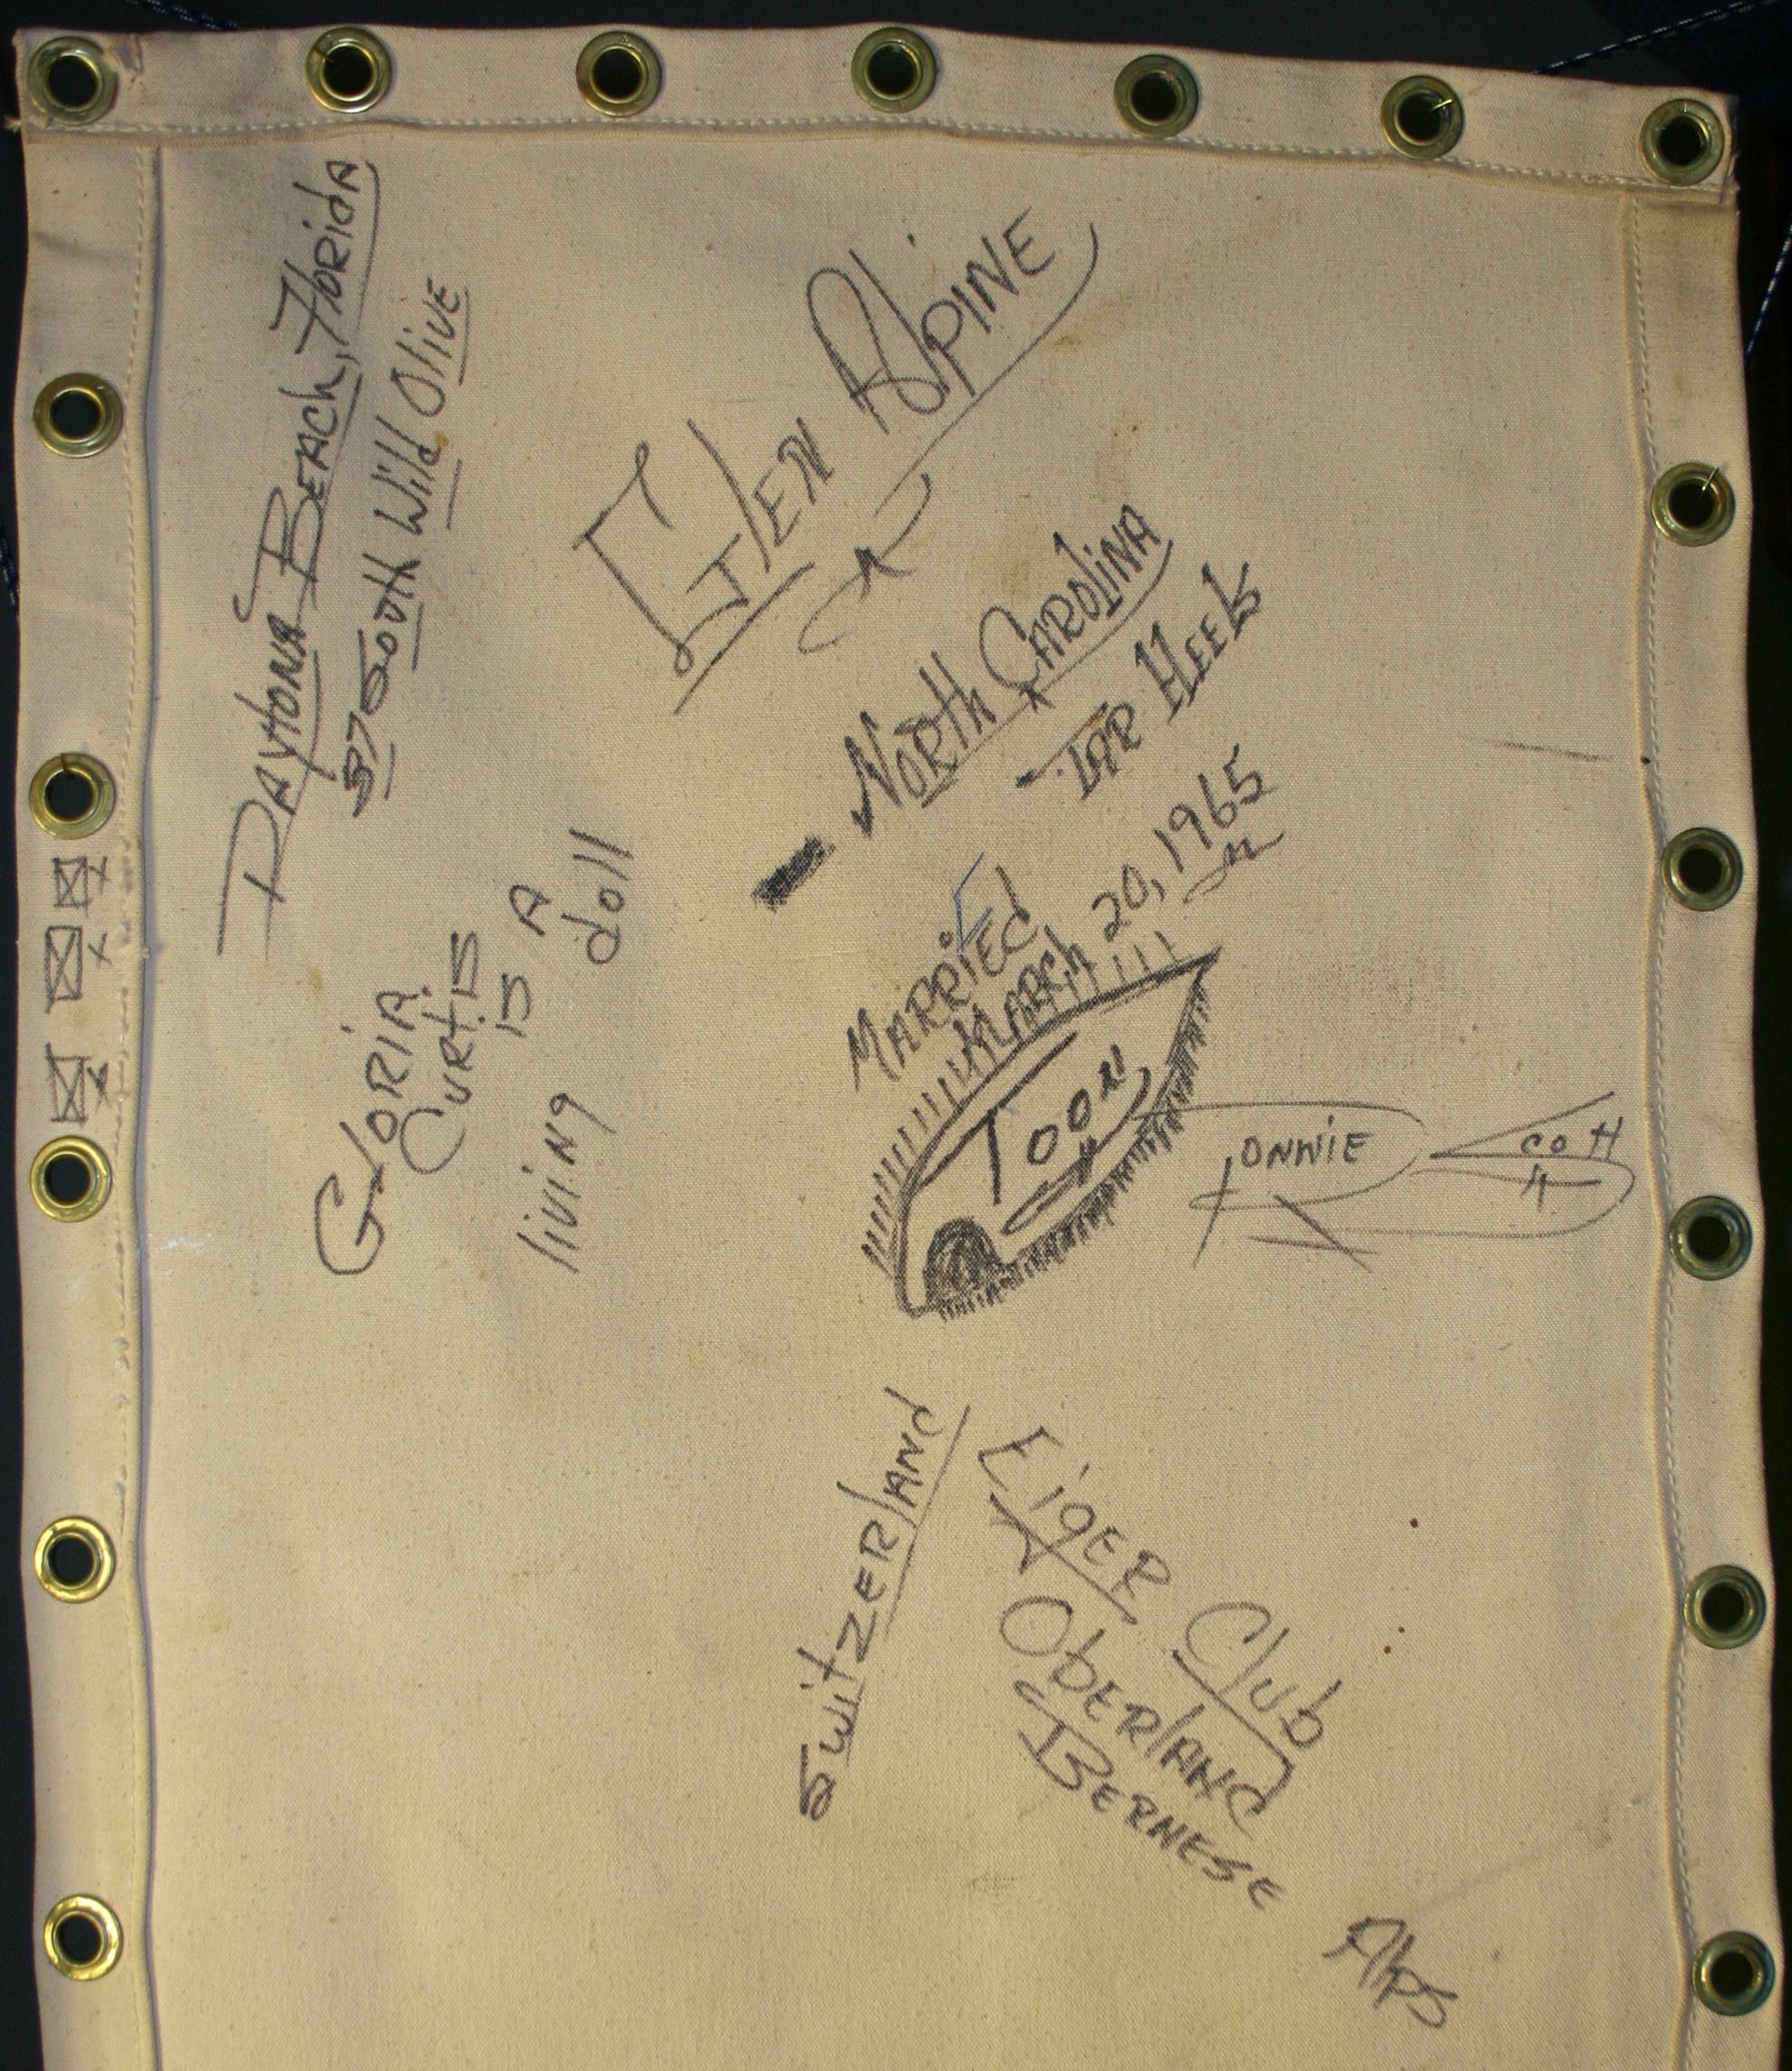 Daytona Beach, Florida
37 South Wild Olive
Glen Alpine
North Carolina
Tar Heels
Married
March 20, 1965
Toon
Gloria
Curtis
is A
living doll
Switzerland
Eiger Club
Oberland
Bernese
Alps